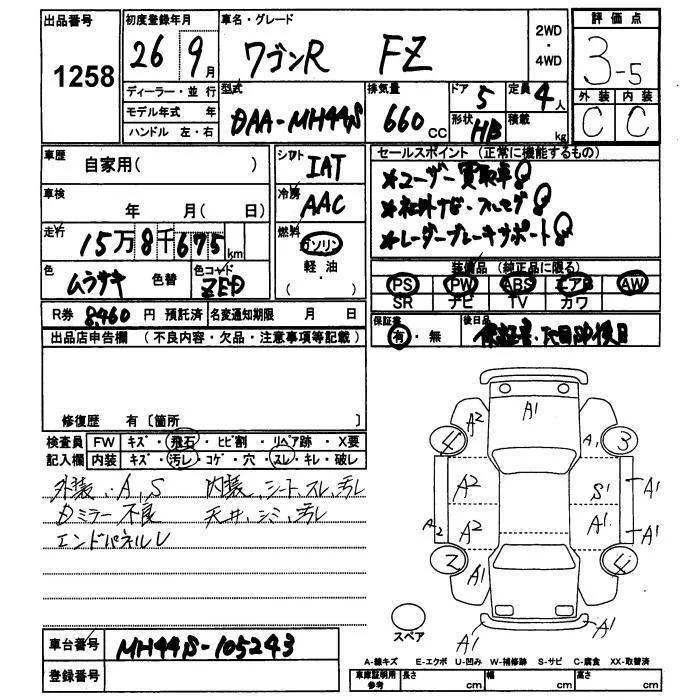 出品番号
1258
初度登録年月
26 9月
車名・グレード
ワゴンR FZ
2WD
・
4WD
評価点
3-5
外装 内装
C C
ディーラー・並行
モデル年式 年
ハンドル 左・右
型式
DAA-MH44S
排気量
660 CC
ドア
5
形状
HB
定員
4人
積載
kg
車歴
自家用( )
シフト
IAT
車検
年 月( 日)
冷房
AAC
走行
15万8千675km
燃料
ガソリン
軽・油
色
ムラサキ
色替
色コード
ZED
R券 8,460 円 預託済
名変通知期限 月 日
セールスポイント (正常に機能するもの)
★ユーザー買取車!
★社外ナビ・フルセグ!
★レーダーブレーキサポート!
装備品(純正品に限る)
PS PW ABS エアB AW
SR ナビ TV カワ
保証書
有・無
後日品
保証書・取説後日
出品店申告欄 (不良内容・欠品・注意事項等記載)
修復歴 有〔箇所 〕
検査員 FW キズ・飛石・ヒビ割・リペア跡・X要
記入欄 内装 キズ・汚レ・コゲ・穴・スレ・キレ・破レ
外装、A、S 内装、シート、スレ、汚レ
Dミラー不良 天井、シミ、汚レ
エンドパネルU
A2 A1 A1
4 3
A2 S1 A1
A2 A2 A1 A1
2 A1 4
A1 A1
スペア
車台番号
MH44S-105243
登録番号
A-線キズ E-エクボ U-凹み W-補修跡 S-サビ C-腐食 XX-取替済
車庫証明用
参考
長さ cm
幅 cm
高さ cm